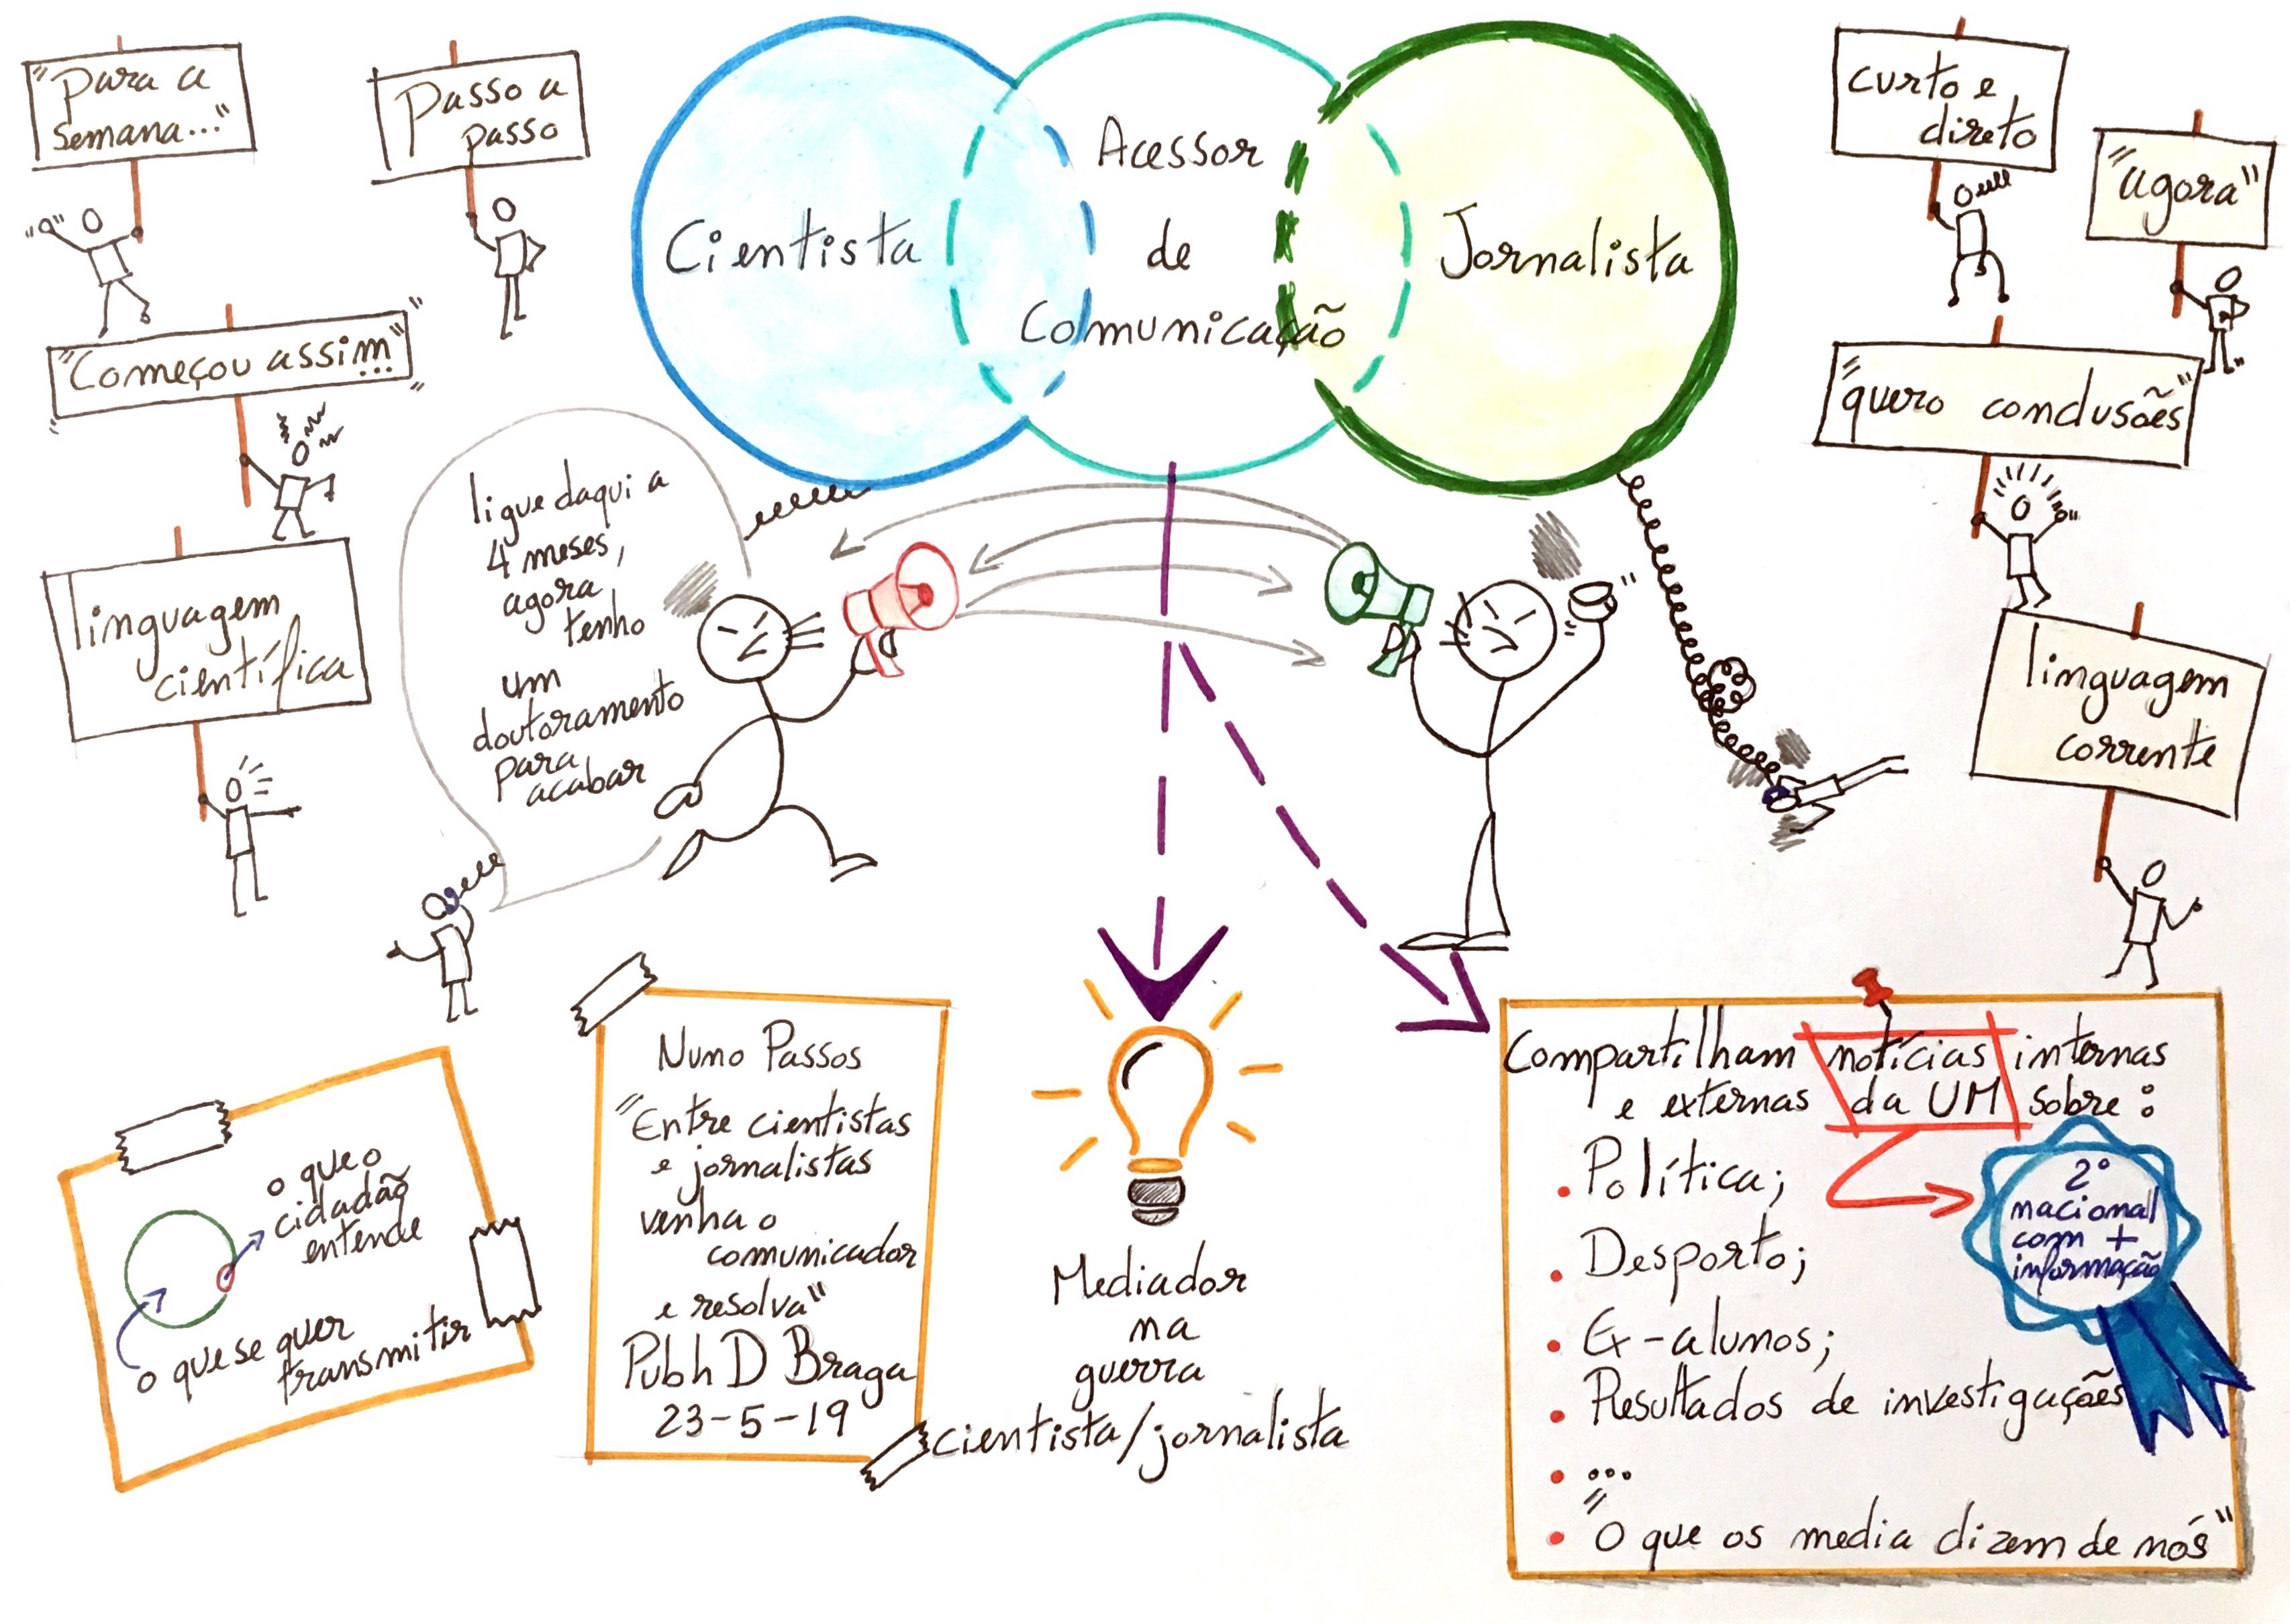 "Para a
semana..."
Passo a
passo
"Começou assim..."
linguagem
científica
Cientista
Acessor
de
Comunicação
Jornalista
curto e
direto
"agora"
"quero conclusões"
linguagem
corrente
ligue daqui a
4 meses,
agora
tenho
um
doutoramento
para
acabar
o que o
cidadão
entende
o que se quer
transmitir
Nuno Passos
"Entre cientistas
e jornalistas
venha o
comunicador
e resolva"
PubhD Braga
23-5-19
Mediador
na
guerra
cientista/jornalista
Compartilham notícias internas
e externas da UM sobre:
. Política;
. Desporto;
. Ex-alunos;
. Resultados de investigações
. ...
. "O que os media dizem de nós"
2º
nacional
com +
informação